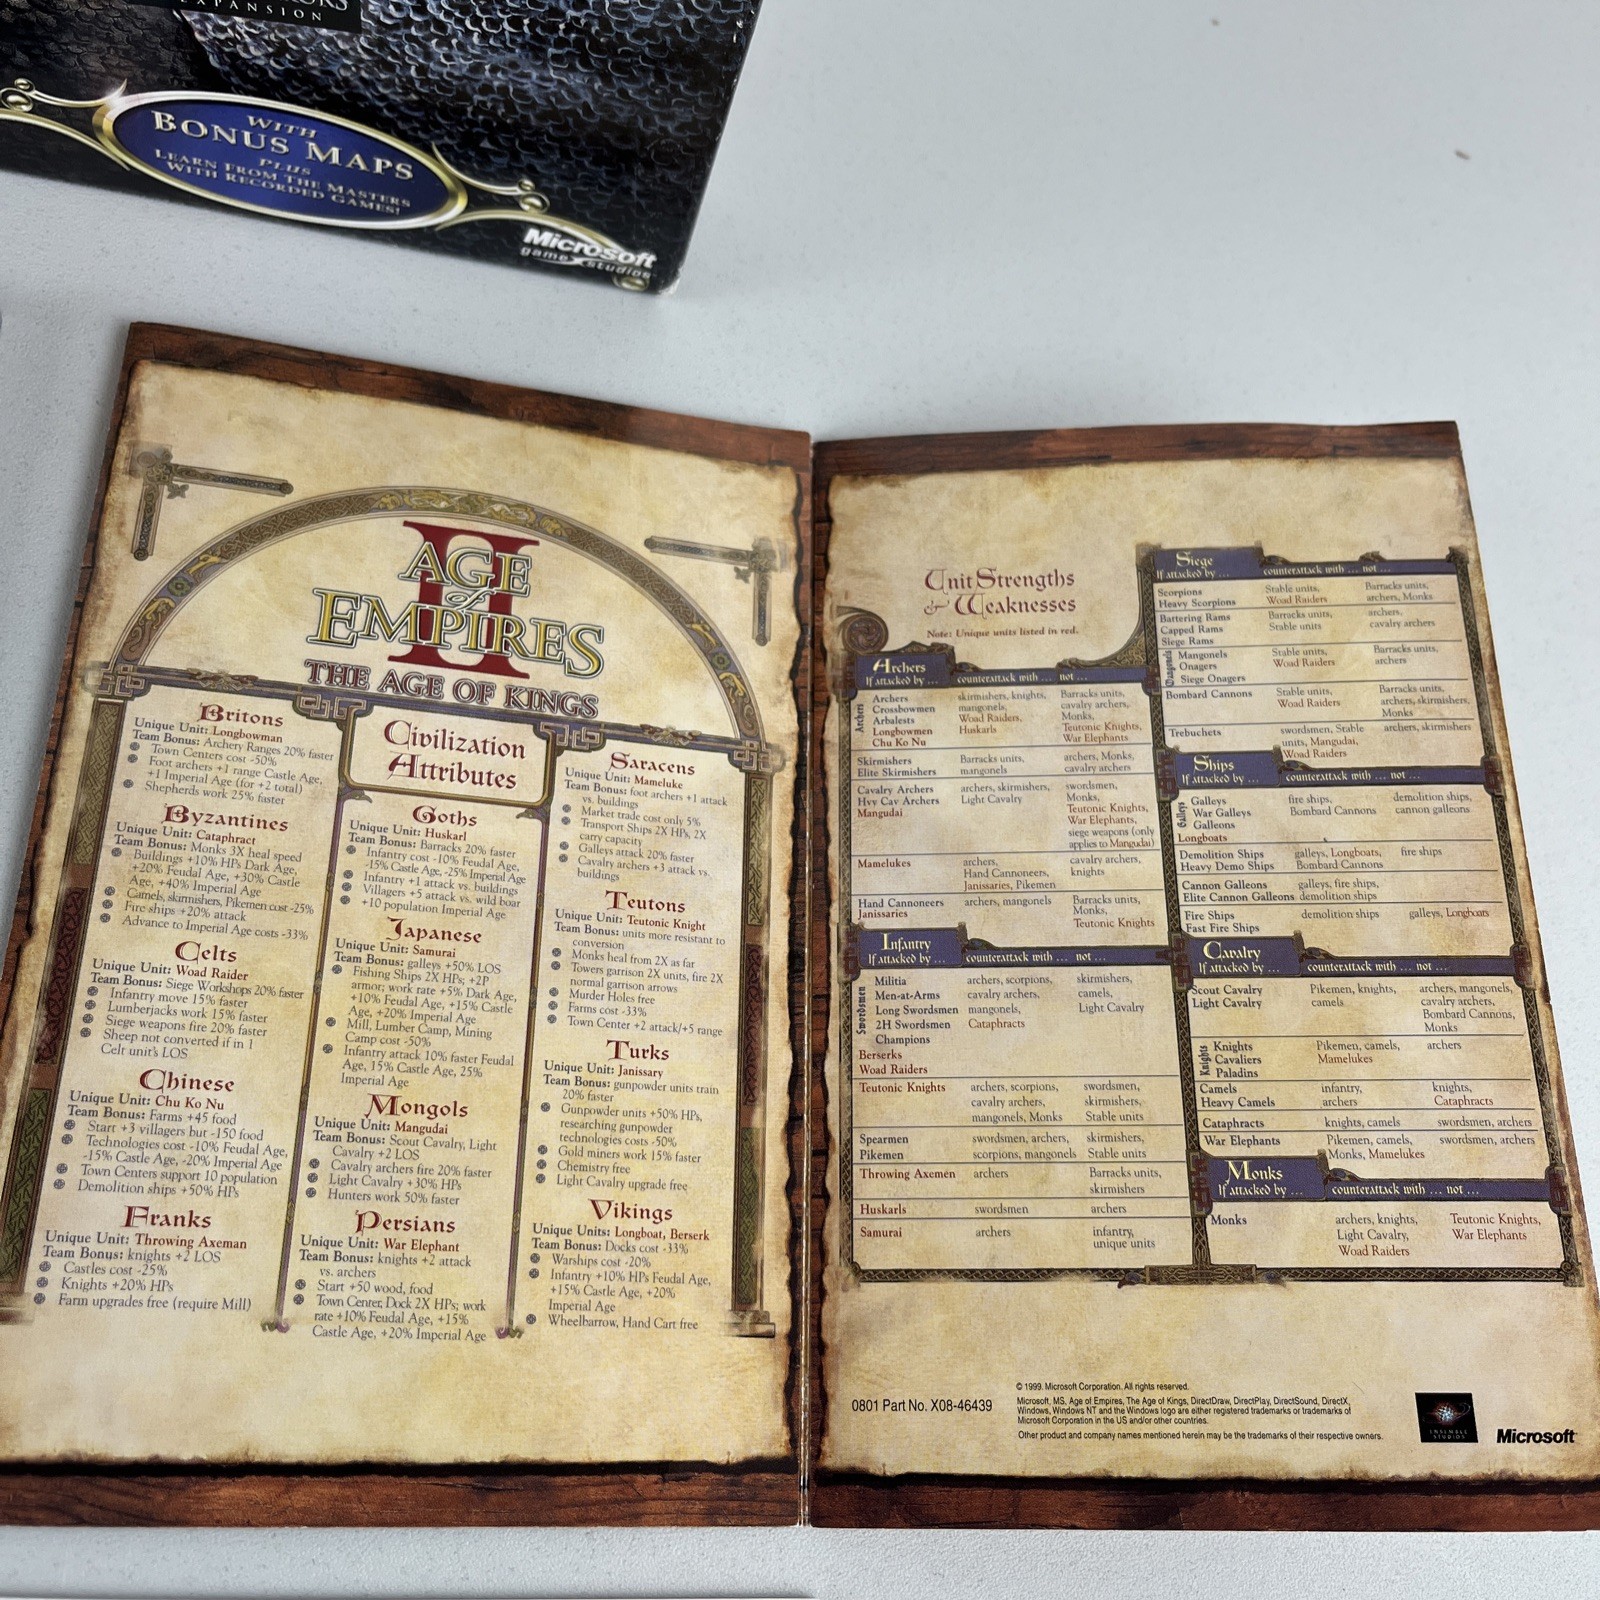 EXPANSION
WITH
BONUS MAPS
PLUS
LEARN FROM THE MASTERS
WITH RECORDED GAMES!
Microsoft
game studios
AGE
of
EMPIRES
II
THE AGE OF KINGS
Civilization
Attributes
Britons
Unique Unit: Longbowman
Team Bonus: Archery Ranges 20% faster
Town Centers cost -50%
Foot archers +1 range Castle Age,
+1 Imperial Age (for +2 total)
Shepherds work 25% faster
Byzantines
Unique Unit: Cataphract
Team Bonus: Monks 3X heal speed
Buildings +10% HPs Dark Age,
+20% Feudal Age, +30% Castle
Age, +40% Imperial Age
Camels, skirmishers, Pikemen cost -25%
Fire ships +20% attack
Advance to Imperial Age costs -33%
Celts
Unique Unit: Woad Raider
Team Bonus: Siege Workshops 20% faster
Infantry move 15% faster
Lumberjacks work 15% faster
Siege weapons fire 20% faster
Sheep not converted if in 1
Celt unit's LOS
Chinese
Unique Unit: Chu Ko Nu
Team Bonus: Farms +45 food
Start +3 villagers but -150 food
Technologies cost -10% Feudal Age,
-15% Castle Age, -20% Imperial Age
Town Centers support 10 population
Demolition ships +50% HPs
Franks
Unique Unit: Throwing Axeman
Team Bonus: knights +2 LOS
Castles cost -25%
Knights +20% HPs
Farm upgrades free (require Mill)
Goths
Unique Unit: Huskarl
Team Bonus: Barracks 20% faster
Infantry cost -10% Feudal Age,
-15% Castle Age, -25% Imperial Age
Infantry +1 attack vs. buildings
Villagers +5 attack vs. wild boar
+10 population Imperial Age
Japanese
Unique Unit: Samurai
Team Bonus: galleys +50% LOS
Fishing Ships 2X HPs; +2P
armor; work rate +5% Dark Age,
+10% Feudal Age, +15% Castle
Age, +20% Imperial Age
Mill, Lumber Camp, Mining
Camp cost -50%
Infantry attack 10% faster Feudal
Age, 15% Castle Age, 25%
Imperial Age
Mongols
Unique Unit: Mangudai
Team Bonus: Scout Cavalry, Light
Cavalry +2 LOS
Cavalry archers fire 20% faster
Light Cavalry +30% HPs
Hunters work 50% faster
Persians
Unique Unit: War Elephant
Team Bonus: knights +2 attack
vs. archers
Start +50 wood, food
Town Center, Dock 2X HPs; work
rate +10% Feudal Age, +15%
Castle Age, +20% Imperial Age
Saracens
Unique Unit: Mameluke
Team Bonus: foot archers +1 attack
vs. buildings
Market trade cost only 5%
Transport Ships 2X HPs, 2X
carry capacity
Galleys attack 20% faster
Cavalry archers +3 attack vs.
buildings
Teutons
Unique Unit: Teutonic Knight
Team Bonus: units more resistant to
conversion
Monks heal from 2X as far
Towers garrison 2X units, fire 2X
normal garrison arrows
Murder Holes free
Farms cost -33%
Town Center +2 attack/+5 range
Turks
Unique Unit: Janissary
Team Bonus: gunpowder units train
20% faster
Gunpowder units +50% HPs,
researching gunpowder
technologies costs -50%
Gold miners work 15% faster
Chemistry free
Light Cavalry upgrade free
Vikings
Unique Units: Longboat, Berserk
Team Bonus: Docks cost -33%
Warships cost -20%
Infantry +10% HPs Feudal Age,
+15% Castle Age, +20%
Imperial Age
Wheelbarrow, Hand Cart free
Unit Strengths
& Weaknesses
Note: Unique units listed in red.
Archers
If attacked by ... counterattack with ... not ...
Archers
Archers skirmishers, knights, Barracks units,
Crossbowmen mangonels, cavalry archers,
Arbalests Woad Raiders, Monks,
Longbowmen Huskarls Teutonic Knights,
Chu Ko Nu War Elephants
Skirmishers Barracks units, archers, Monks,
Elite Skirmishers mangonels cavalry archers
Cavalry Archers archers, skirmishers, swordsmen,
Hvy Cav Archers Light Cavalry Monks,
Mangudai Teutonic Knights,
War Elephants,
siege weapons (only
applies to Mangudai)
Mamelukes archers, cavalry archers,
Hand Cannoneers, knights
Janissaries, Pikemen
Hand Cannoneers archers, mangonels Barracks units,
Janissaries Monks,
Teutonic Knights
Infantry
If attacked by ... counterattack with ... not ...
Swordsmen
Militia archers, scorpions, skirmishers,
Men-at-Arms cavalry archers, camels,
Long Swordsmen mangonels, Light Cavalry
2H Swordsmen Cataphracts
Champions
Berserks
Woad Raiders
Teutonic Knights archers, scorpions, swordsmen,
cavalry archers, skirmishers,
mangonels, Monks Stable units
Spearmen swordsmen, archers, skirmishers,
Pikemen scorpions, mangonels Stable units
Throwing Axemen archers Barracks units,
skirmishers
Huskarls swordsmen archers
Samurai archers infantry,
unique units
Siege
If attacked by ... counterattack with ... not ...
Scorpions Stable units, Barracks units,
Heavy Scorpions Woad Raiders archers, Monks
Battering Rams Barracks units, archers,
Capped Rams Stable units cavalry archers
Siege Rams
Mangonels Stable units, Barracks units,
Onagers Woad Raiders archers
Siege Onagers
Bombard Cannons Stable units, Barracks units,
Woad Raiders archers, skirmishers,
Monks
Trebuchets swordsmen, Stable archers, skirmishers
units, Mangudai,
Woad Raiders
Ships
If attacked by ... counterattack with ... not ...
Galleys
Galleys fire ships, demolition ships,
War Galleys Bombard Cannons cannon galleons
Galleons
Longboats
Demolition Ships galleys, Longboats, fire ships
Heavy Demo Ships Bombard Cannons
Cannon Galleons galleys, fire ships,
Elite Cannon Galleons demolition ships
Fire Ships demolition ships galleys, Longboats
Fast Fire Ships
Cavalry
If attacked by ... counterattack with ... not ...
Scout Cavalry Pikemen, knights, archers, mangonels,
Light Cavalry camels cavalry archers,
Bombard Cannons,
Monks
Knights
Knights Pikemen, camels, archers
Cavaliers Mamelukes
Paladins
Camels infantry, knights,
Heavy Camels archers Cataphracts
Cataphracts knights, camels swordsmen, archers
War Elephants Pikemen, camels, swordsmen, archers
Monks, Mamelukes
Monks
If attacked by ... counterattack with ... not ...
Monks archers, knights, Teutonic Knights,
Light Cavalry, War Elephants
Woad Raiders
0801 Part No. X08-46439
© 1999. Microsoft Corporation. All rights reserved.
Microsoft, MS, Age of Empires, The Age of Kings, DirectDraw, DirectPlay, DirectSound, DirectX,
Windows, Windows NT and the Windows logo are either registered trademarks or trademarks of
Microsoft Corporation in the US and/or other countries.
Other product and company names mentioned herein may be the trademarks of their respective owners.
ENSEMBLE
STUDIOS
Microsoft